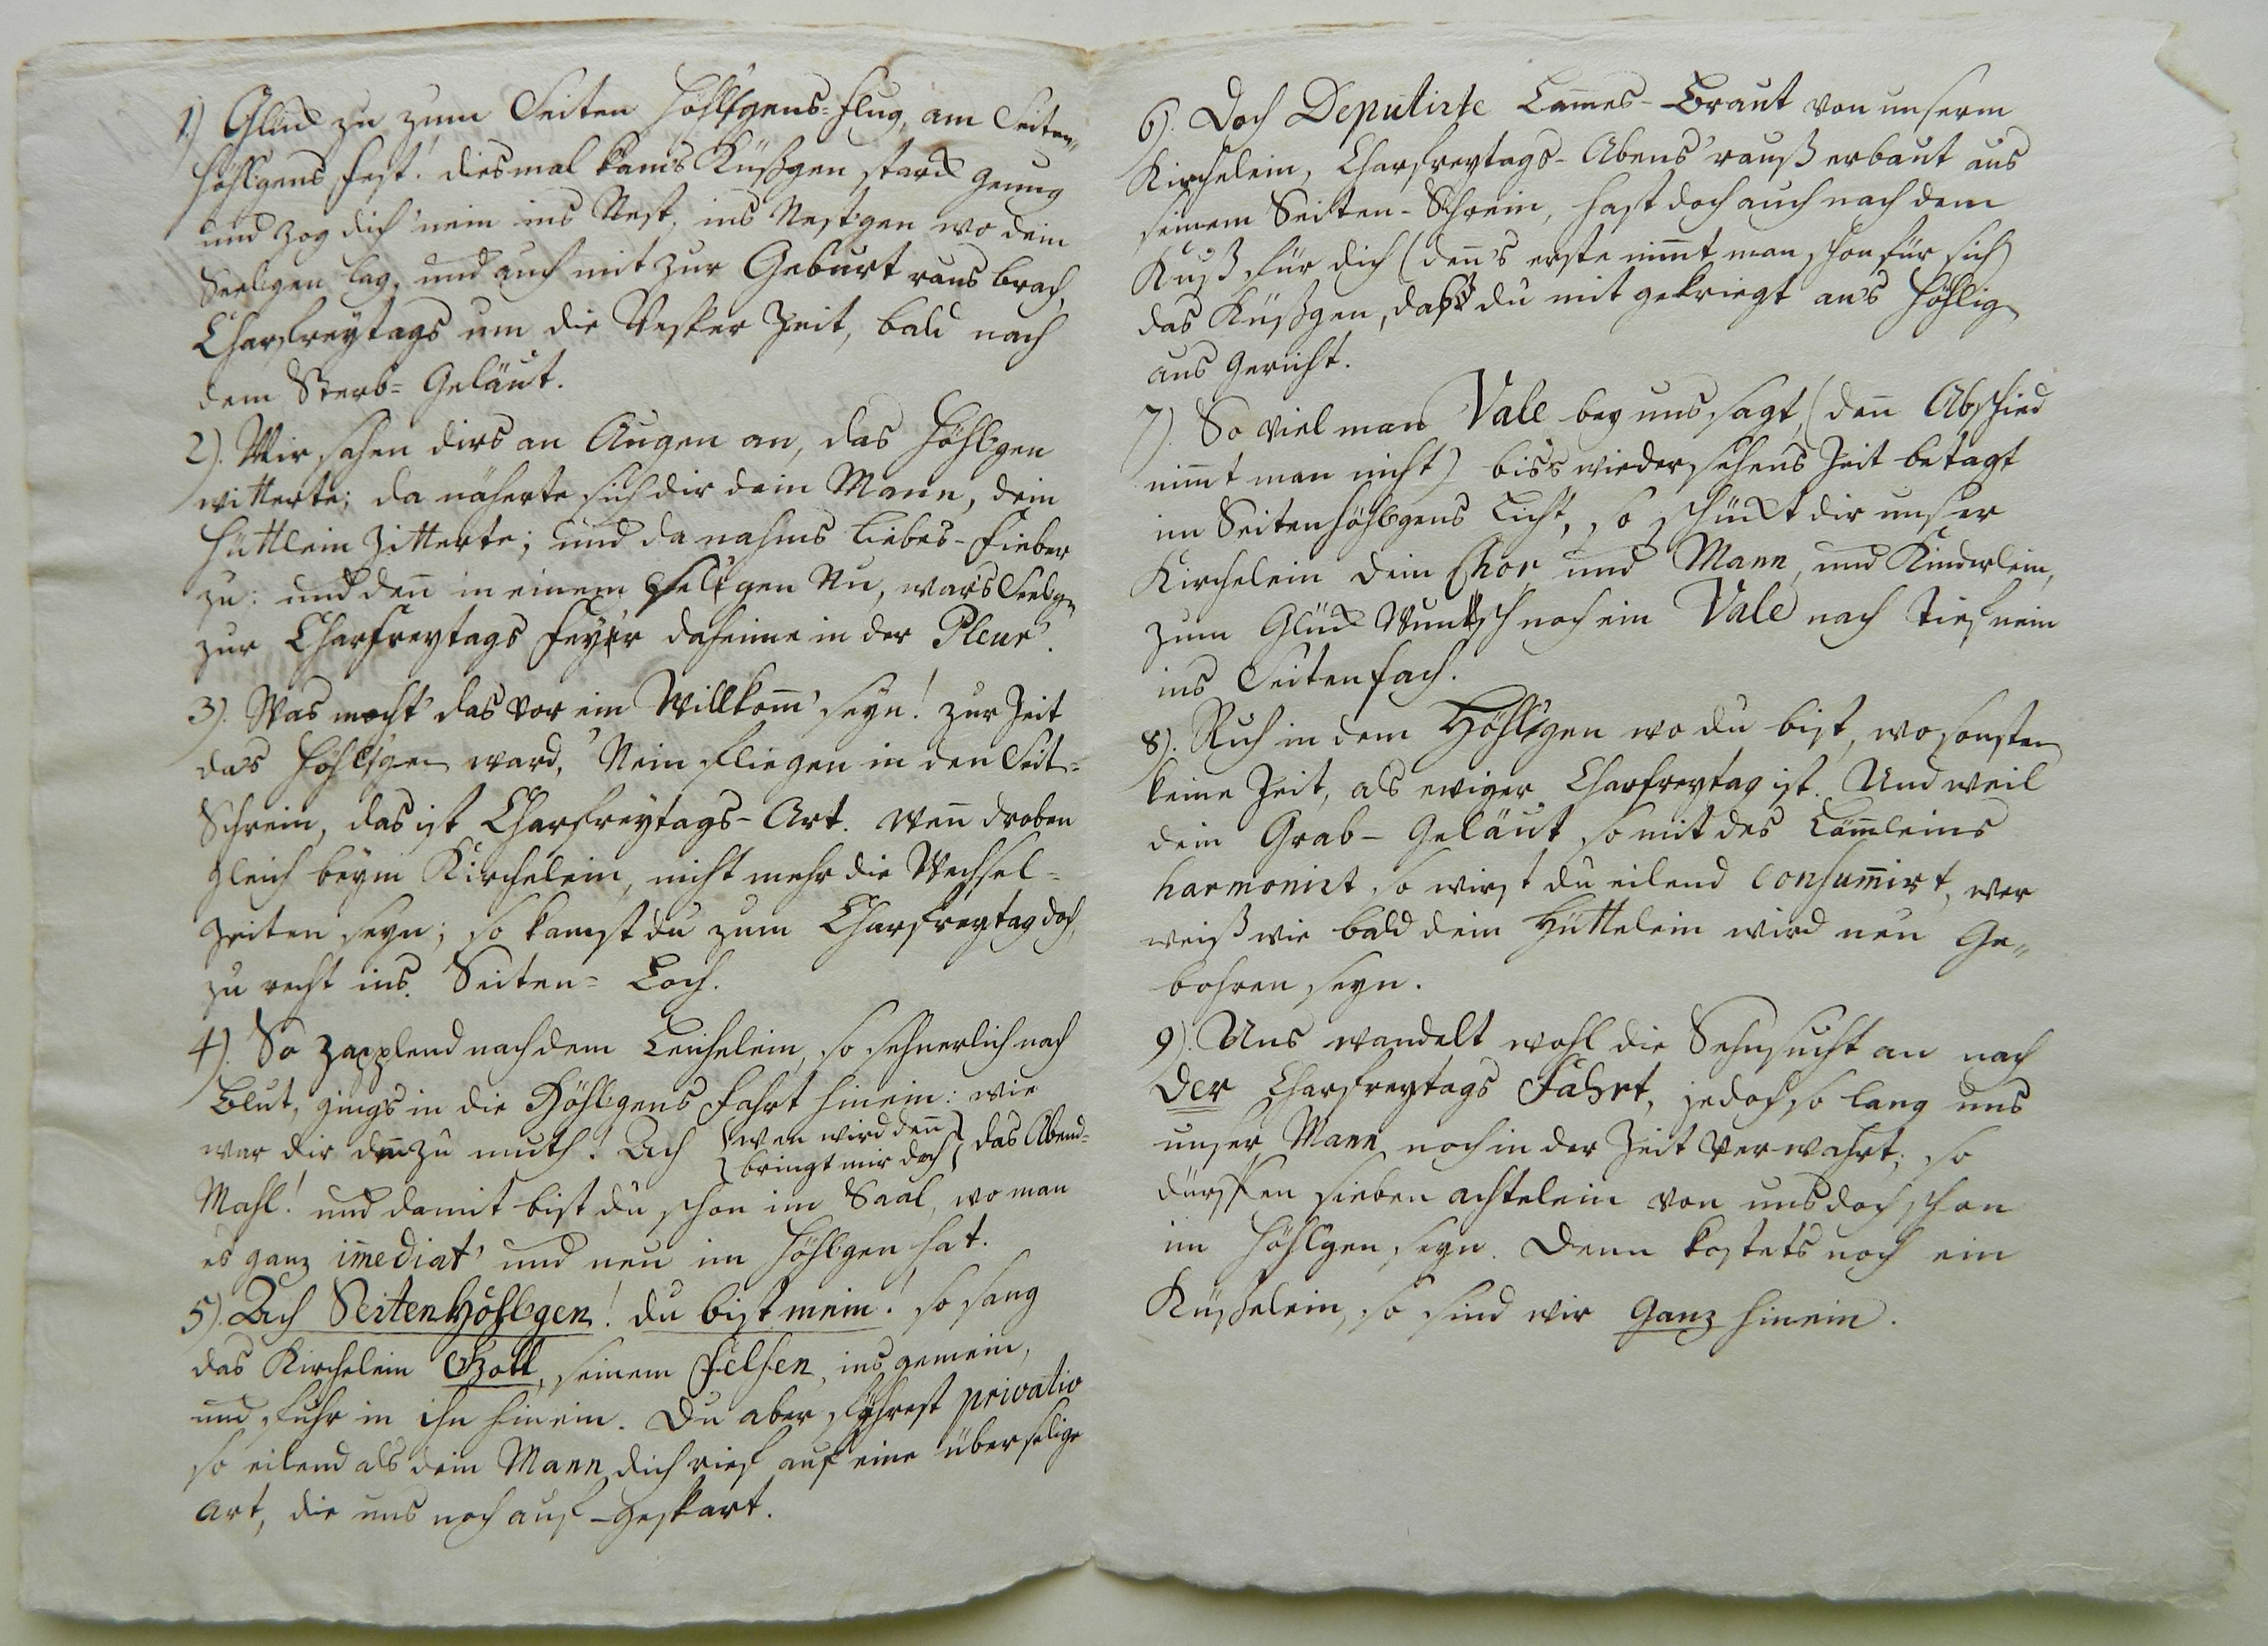 1.) Glück zu zum Seiten Höhlgens-Flug, am Seiten„
Höhlgens Fest! diesmal kam's Küßgen starck genug
und zog dich 'nein ins Nest, ins Nestgen wo dein
Seelgen lag, und auch mit zur Geburt raus brach,
Charfreytags um die Vesper Zeit, bald nach
dem Sterb= Geläut.
2). Wir sahen dirs an Augen an, das Höhlgen
witterte; da näherte sich dir dein Mann, dein
Hüttlein zitterte; und da nahms Liebes-Fieber
zu: und deñ in einem selgen Nu, war's Seelgen
zur Charfreytags Feyer daheime in der Pleur.
3). Was mocht' das vor ein Willkom̄' seyn! zur Zeit
da's Höhlgen ward, 'Nein fliegen in den Seit=
Schrein, das ist Charfreytags-Art. Weñ droben
gleich beym Kirchelein, nicht mehr die Wechsel=
Zeiten seyn; so kamst du zum Charfreytag doch,
zu recht ins Seiten= Loch.
4). So zapplend nach dem Leichelein, so sehnerlich nach
Blut, gings in die Höhlgens Fahrt hinein: wie
war dir deñ zu muth! Ach {wen wird deñ
bringt mir doch} das Abend=
Mahl! und damit bist du schon im Saal, wo man
es ganz im̄ediat' und neu im Höhlgen hat.
5). Ach Seitenhöhlgen! du bist mein! so sang
das Kirchelein Gott, seinem Felsen, ins gemein,
und fuhr in ihn hinein. Du aber fuhrest privativ
so eilend als dein Mann dich rief auf eine überselige
Art, die uns noch auf-gespart.
6). Doch Deputirte Lam̄es-Braut von unserm
Kirchelein, Charfreytags-Abens 'rauß erbaut aus
seinem Seiten-Schrein, hast doch auch nach dem
Kuß für dich (deñ's erste nim̄t man schon für sich)
das Küßgen, daß du mit gekriegt an's Höhlgen
ausgericht.
7). So viel man Vale bey uns sagt, (deñ Abschied
nim̄t man nicht) bis's wiedersehens Zeit betagt
im Seitenhöhlgens Licht, so schückt dir unser
Kirchelein dein Chor, und Mann, und Kinderlein,
zum Glück Wuntsch noch ein Vale nach tief nein
ins Seitenfach.
8). Ruh in dem Höhlgen wo du bist, wo sonsten
keine Zeit, als ewiger Charfreytag ist. Und weil
dein Grab-Geläut so mit des Läm̄leins
harmonirt, so wirst du eilend consum̄irt, wer
weiß wie bald dein Hüttelein wird neu Ge„
bohren seyn.
9). Uns wandelt wohl die Sehnsucht an nach
der Charfreytags Fahrt, jedoch so lang uns
unser Mann noch in der Zeit verwahrt; so
dürffen sieben achtelein von uns doch schon
im Höhlgen seyn. Denn kostets noch ein
Küßelein, so sind wir ganz hinein.